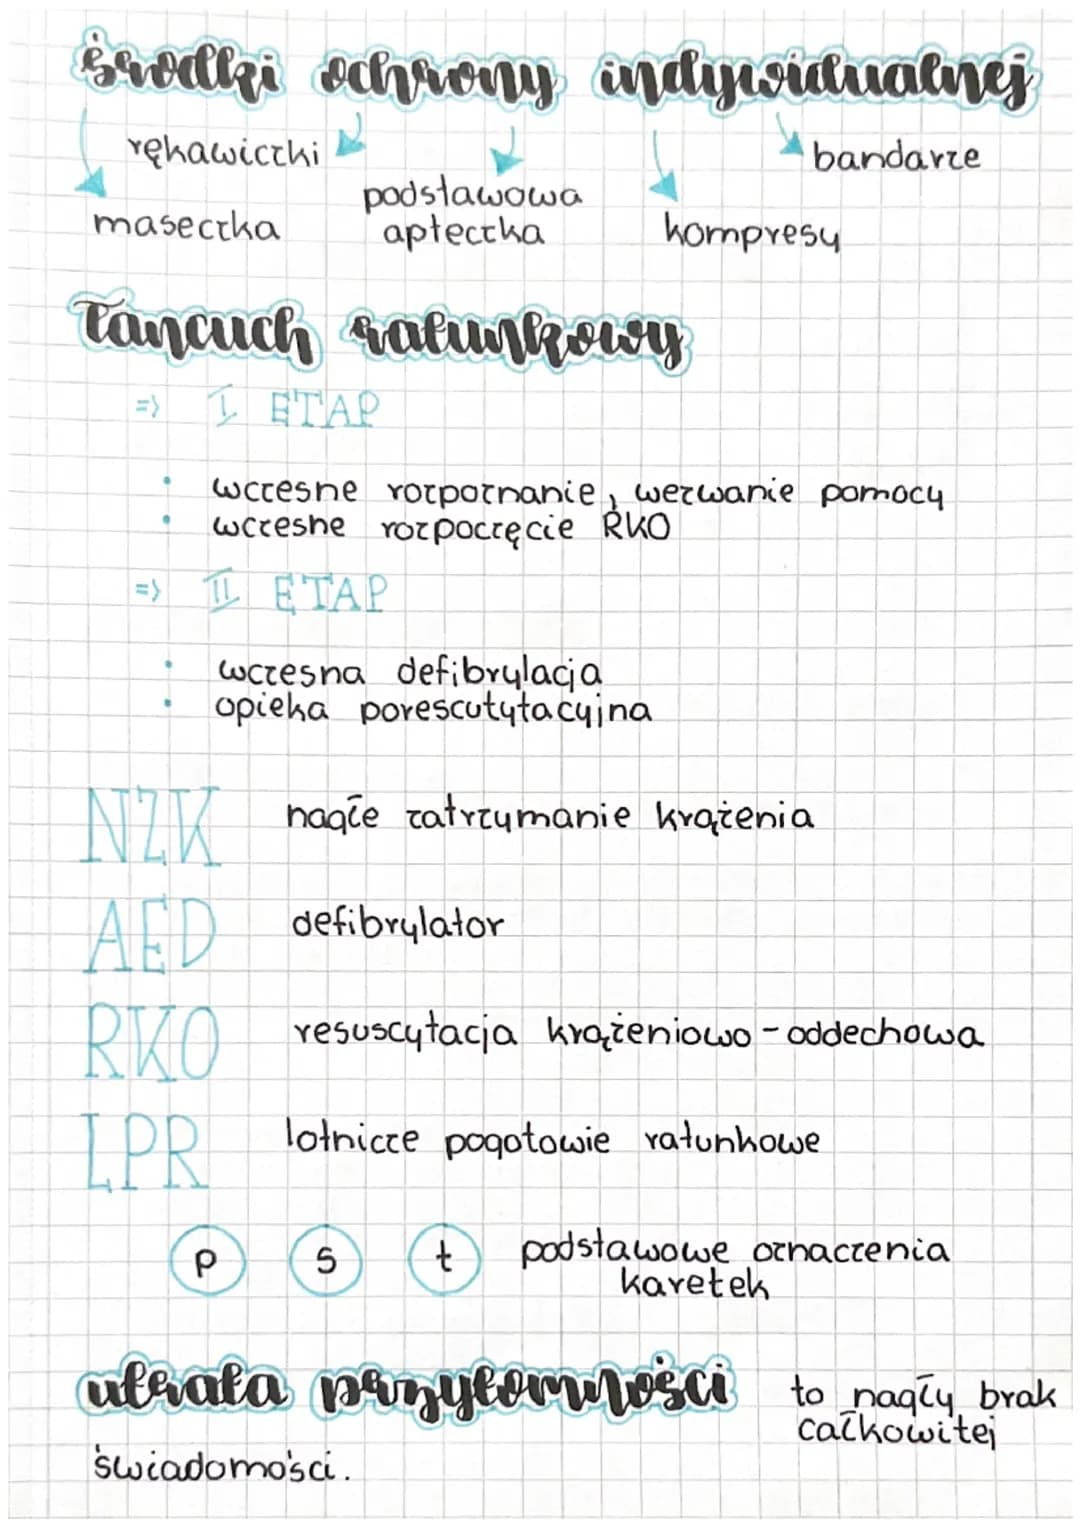 środki ochrony indywidualnej
rękawiczki
bandaże
maseczka
podstawowa
apteczka
kompresy
Łańcuch ratunkowy
=> I ETAP
• wczesne rozpoznanie, wezwanie pomocy
• wczesne rozpoczęcie RKO
=> II ETAP
• wczesna defibrylacja
• opieka porescutytacyjna
NZK nagłe zatrzymanie krążenia
AED defibrylator
RKO resuscytacja krążeniowo-oddechowa
LPR lotnicze pogotowie ratunkowe
p s t podstawowe oznaczenia
karetek
utrata przytomności to nagły brak
całkowitej
świadomości.